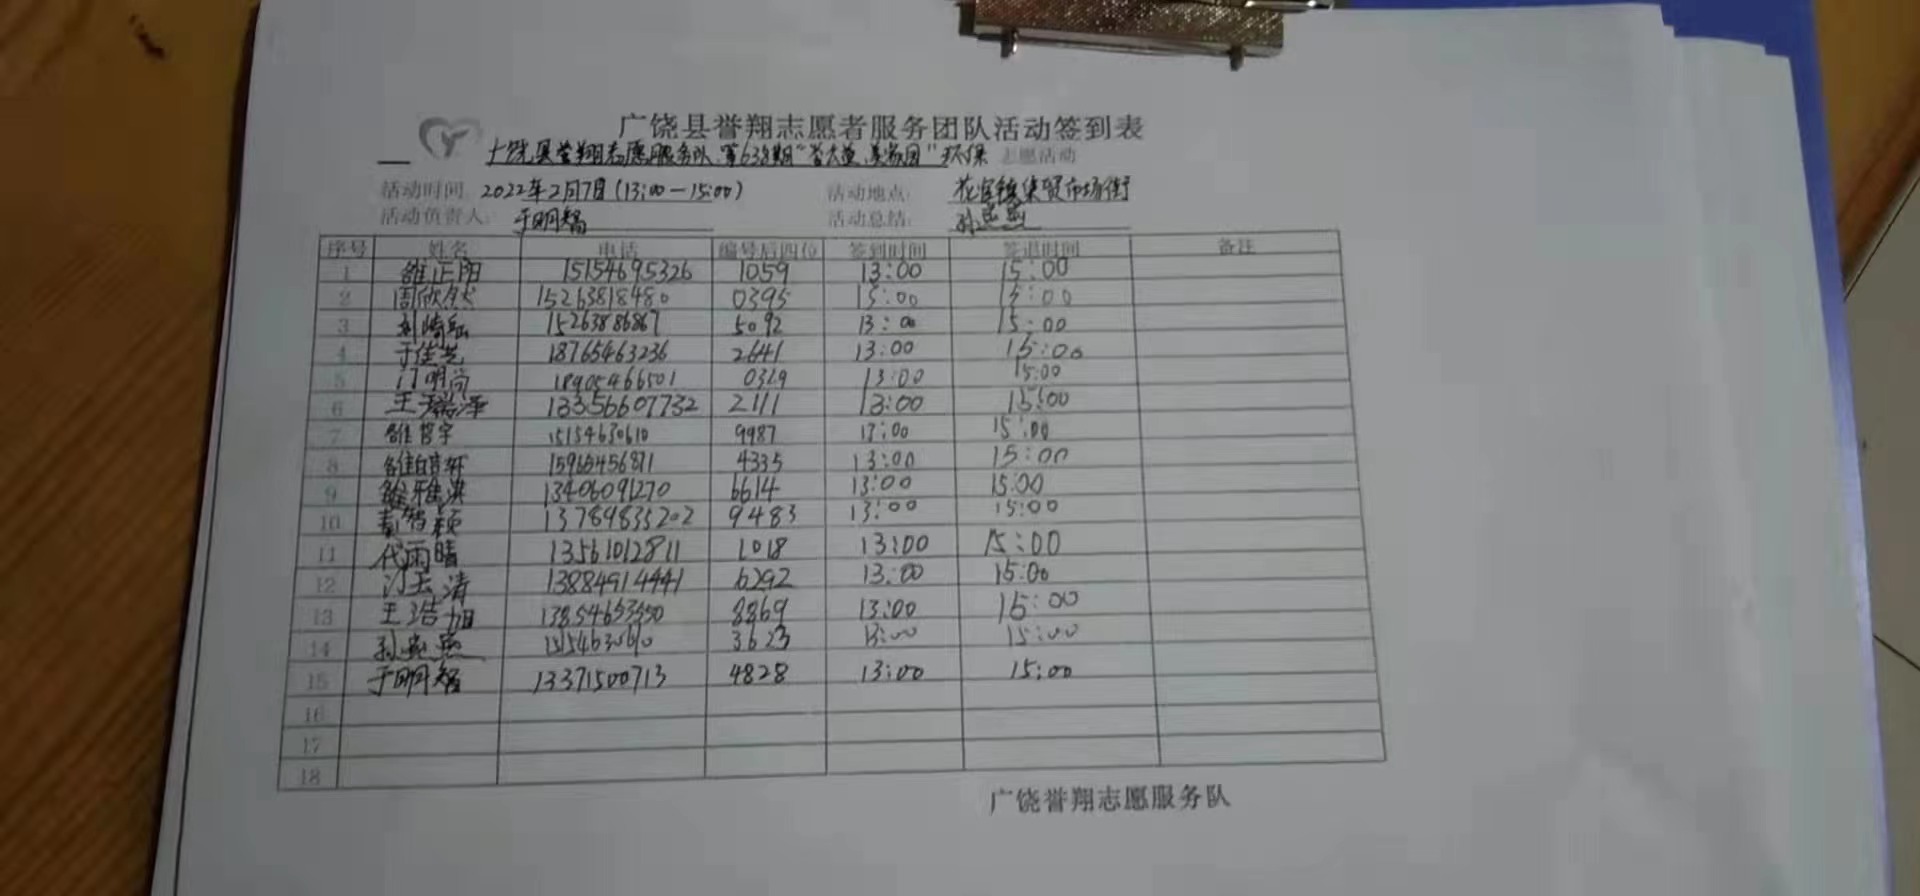 广饶县誉翔志愿者服务团队活动签到表
广饶县誉翔志愿服务队第638期 美家园"环保 志愿活动
活动时间: 2022年2月7日(13:00-15:00) 活动地点: 花官镇集贸市场街
活动负责人: 于明智 活动总结: 孙燕燕
序号 姓名 电话 编号后四位 签到时间 签退时间 备注
1 雒正阳 15154695326 1059 13:00 15:00
2 周欣然 15263818480 0395 13:00 15:00
3 刘崎岳 15263886867 5092 13:00 15:00
4 于佳艺 18765463236 2641 13:00 15:00
5 门明尚 18905466501 0329 13:00 15:00
6 王瑞泽 13356607732 2111 13:00 15:00
7 雒哲宇 15154630610 9987 13:00 15:00
8 15965456811 4335 13:00 15:00
9 雅淇 13406091270 6614 13:00 15:00
10 智颖 13789835202 9483 13:00 15:00
11 代雨晴 13561012811 1018 13:00 15:00
12 门玉清 13884914441 6292 13:00 15:00
13 王浩旭 13854653550 8869 13:00 15:00
14 孙燕燕 3623 13:00 15:00
15 于明智 13371500713 4828 13:00 15:00
16
17
18
广饶誉翔志愿服务队